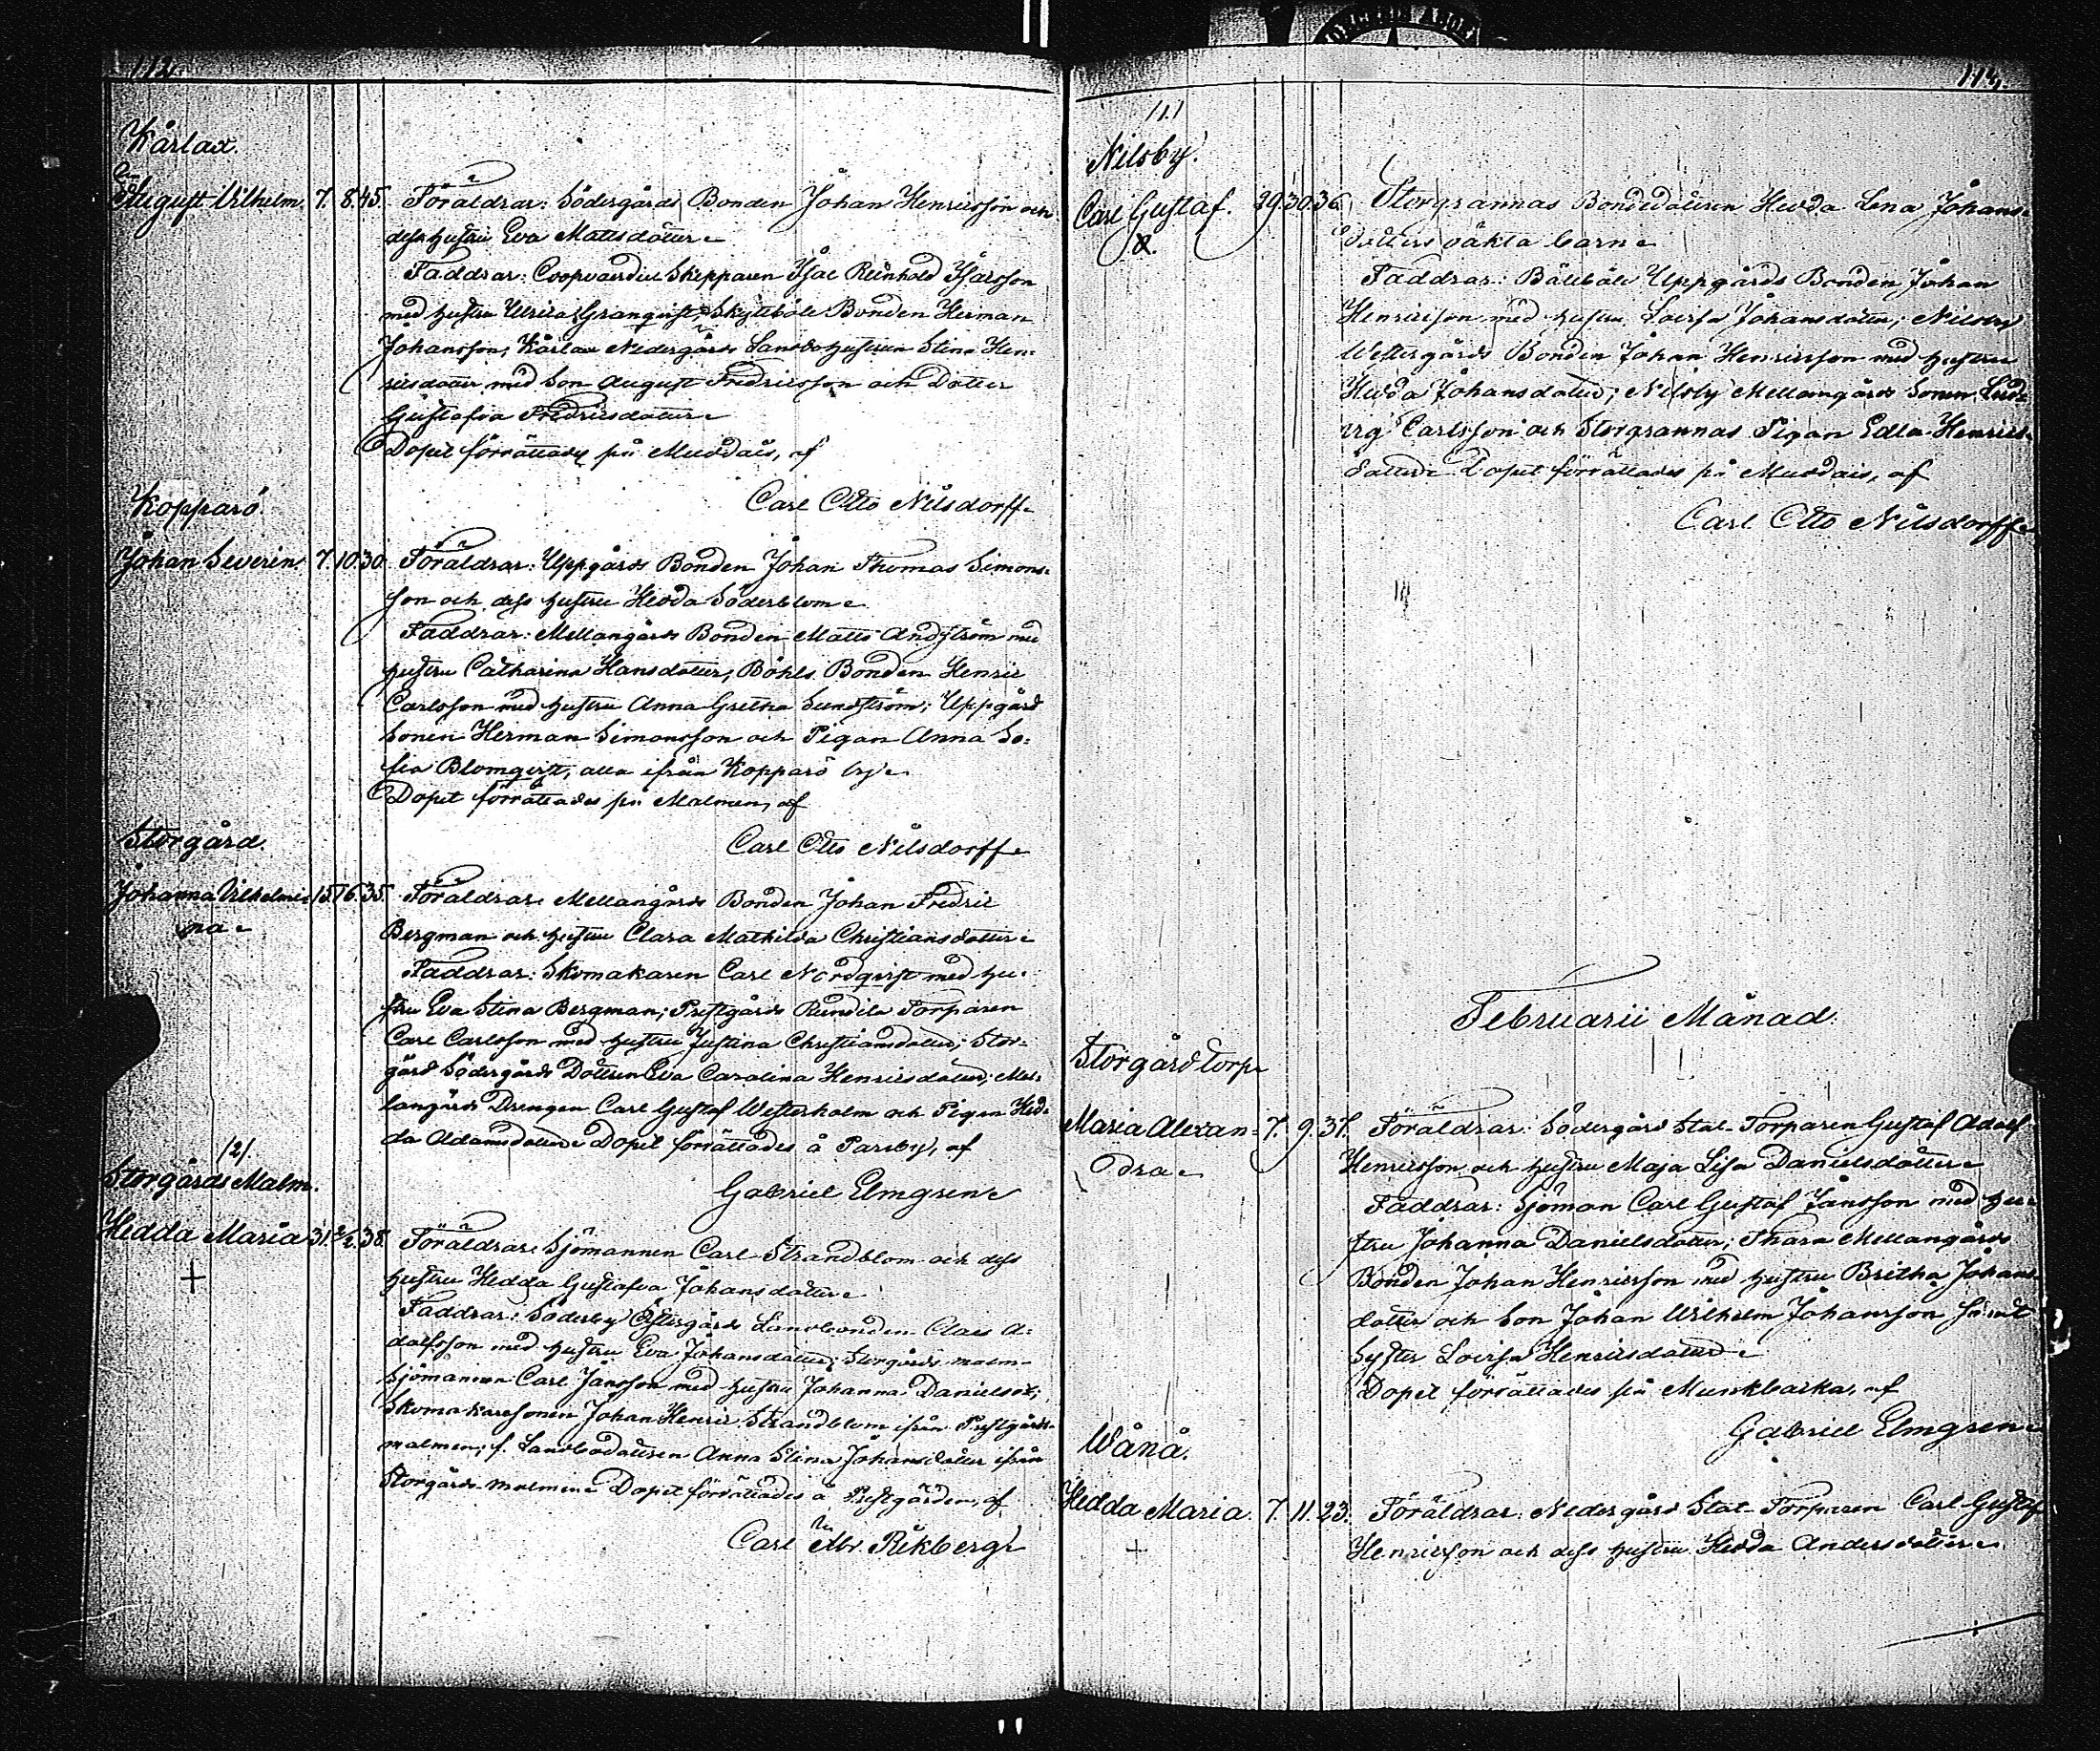 112.
Kårlax.
August Wilhelm. 7. 8. 45. Föräldrar: Södergårds Bonden Johan Henricsson och
dess hustru Eva Mattsdotter
Faddrar: Coopvaerdie Skepparen Isac Reinhold Isacsson
med hustru Ulrica Granqvist, Skytteböle Bonden Herman
Johansson, Kårlax Nedergårds Landbohustrun Stina Hen-
ricsdotter med Son August Fredricsson och Dotter
Gustafva Fredricsdotter
Dopet förrättades på Muddais, af
Carl Otto Nilsdorff
Kopparö
Johan Severin. 7. 10. 30. Föräldrar: Uppgårds Bonden Johan Thomas Simons-
son och dess hustru Hedda Söderblom
Faddrar: Mellangårds Bonden Matts Andström med
hustru Catharina Hansdotter, Böhls Bonden Henric
Carlsson med hustru Anna Gretha Sundström; Uppgård
Sonen Herman Simonsson och Pigan Anna So-
fia Blomqvist, alla ifrån Kopparö by
Dopet förrättades på Malmen, af
Carl Otto Nilsdorff
Storgård.
Johanna Vilhelmi- 15. 16. 35. Föräldrar: Mellangårds Bonden Johan Fredric
na Bergman och hustru Clara Mathilda Christiansdotter
Faddrar: Skomakaren Carl Nordqvist med hu-
stru Eva Stina Bergman; Prestgårds Rundila Torparen
Carl Carlsson med hustru Justina Christiansdotter; Stor-
gård Södergårds Dottren Eva Carolina Henricsdotter; Mel-
langårds Drengen Carl Gustaf Westerholm och Pigan Hed-
da Adamsdotter Dopet förrättades å Parsby, af
Gabriel Elmgren
/2/.
Storgårds Malm.
Hedda Maria 31. 2/2. 38. Föräldrar: Sjömannen Carl Strandblom och dess
+ hustru Hedda Gustafva Johansdotter
Faddrar: Söderby Östergårds Landbonden Claes A-
dolfsson med hustru Eva Johansdotter; Storgårds malm-
Sjömannen Carl Jansson med hustru Johanna Danielsdt;
Skomakaresonen Johan Henric Strandblom ifrån Prestgårds-
malmen; f. Landbodottren Anna Stina Johansdotter ifrån
Storgårds malmen Dopet förrättades å Prestgården, af
Carl Abr. Rikberg
113.
/1./
Nilsby.
Carl Gustaf. 29. 30. 36. Storgrannas Bondedottren Hedda Lena Johans-
dotters oäkta barn
Faddrar: Bäliböle Uppgårds Bonden Johan
Henricsson med hustru Lovisa Johansdotter; Nilsby
Westergårds Bonden Johan Henricsson med hustru
Hedda Johansdotter; Nilsby Mellangårds Sonen Lud-
vig Carlsson och Storgrannas Pigan Edla Henrics-
dotter Dopet förrättades på Muddais, af
Carl Otto Nilsdorff
Februarii Månad.
Storgård torp
Maria Alexan- 7. 9. 37. Föräldrar: Södergård Stat-Torparen Gustaf Adolf
dra Henricsson och hustru Maja Lisa Danielsdotter
Faddrar: Sjöman Carl Gustaf Jansson med hu-
stru Johanna Danielsdotter; Thara Mellangårds
Bonden Johan Henricsson med hustru Britha Johans-
dotter och Son Johan Wilhelm Johansson samt
Syster Lovisa Henricsdotter
Dopet förrättades på Munkbacka, af
Gabriel Elmgren
Wånå.
Hedda Maria. 7. 11. 23. Föräldrar: Nedergård Stat-Torparen Carl Gustaf
+ Henricsson och dess hustru Hedda Andersdotter